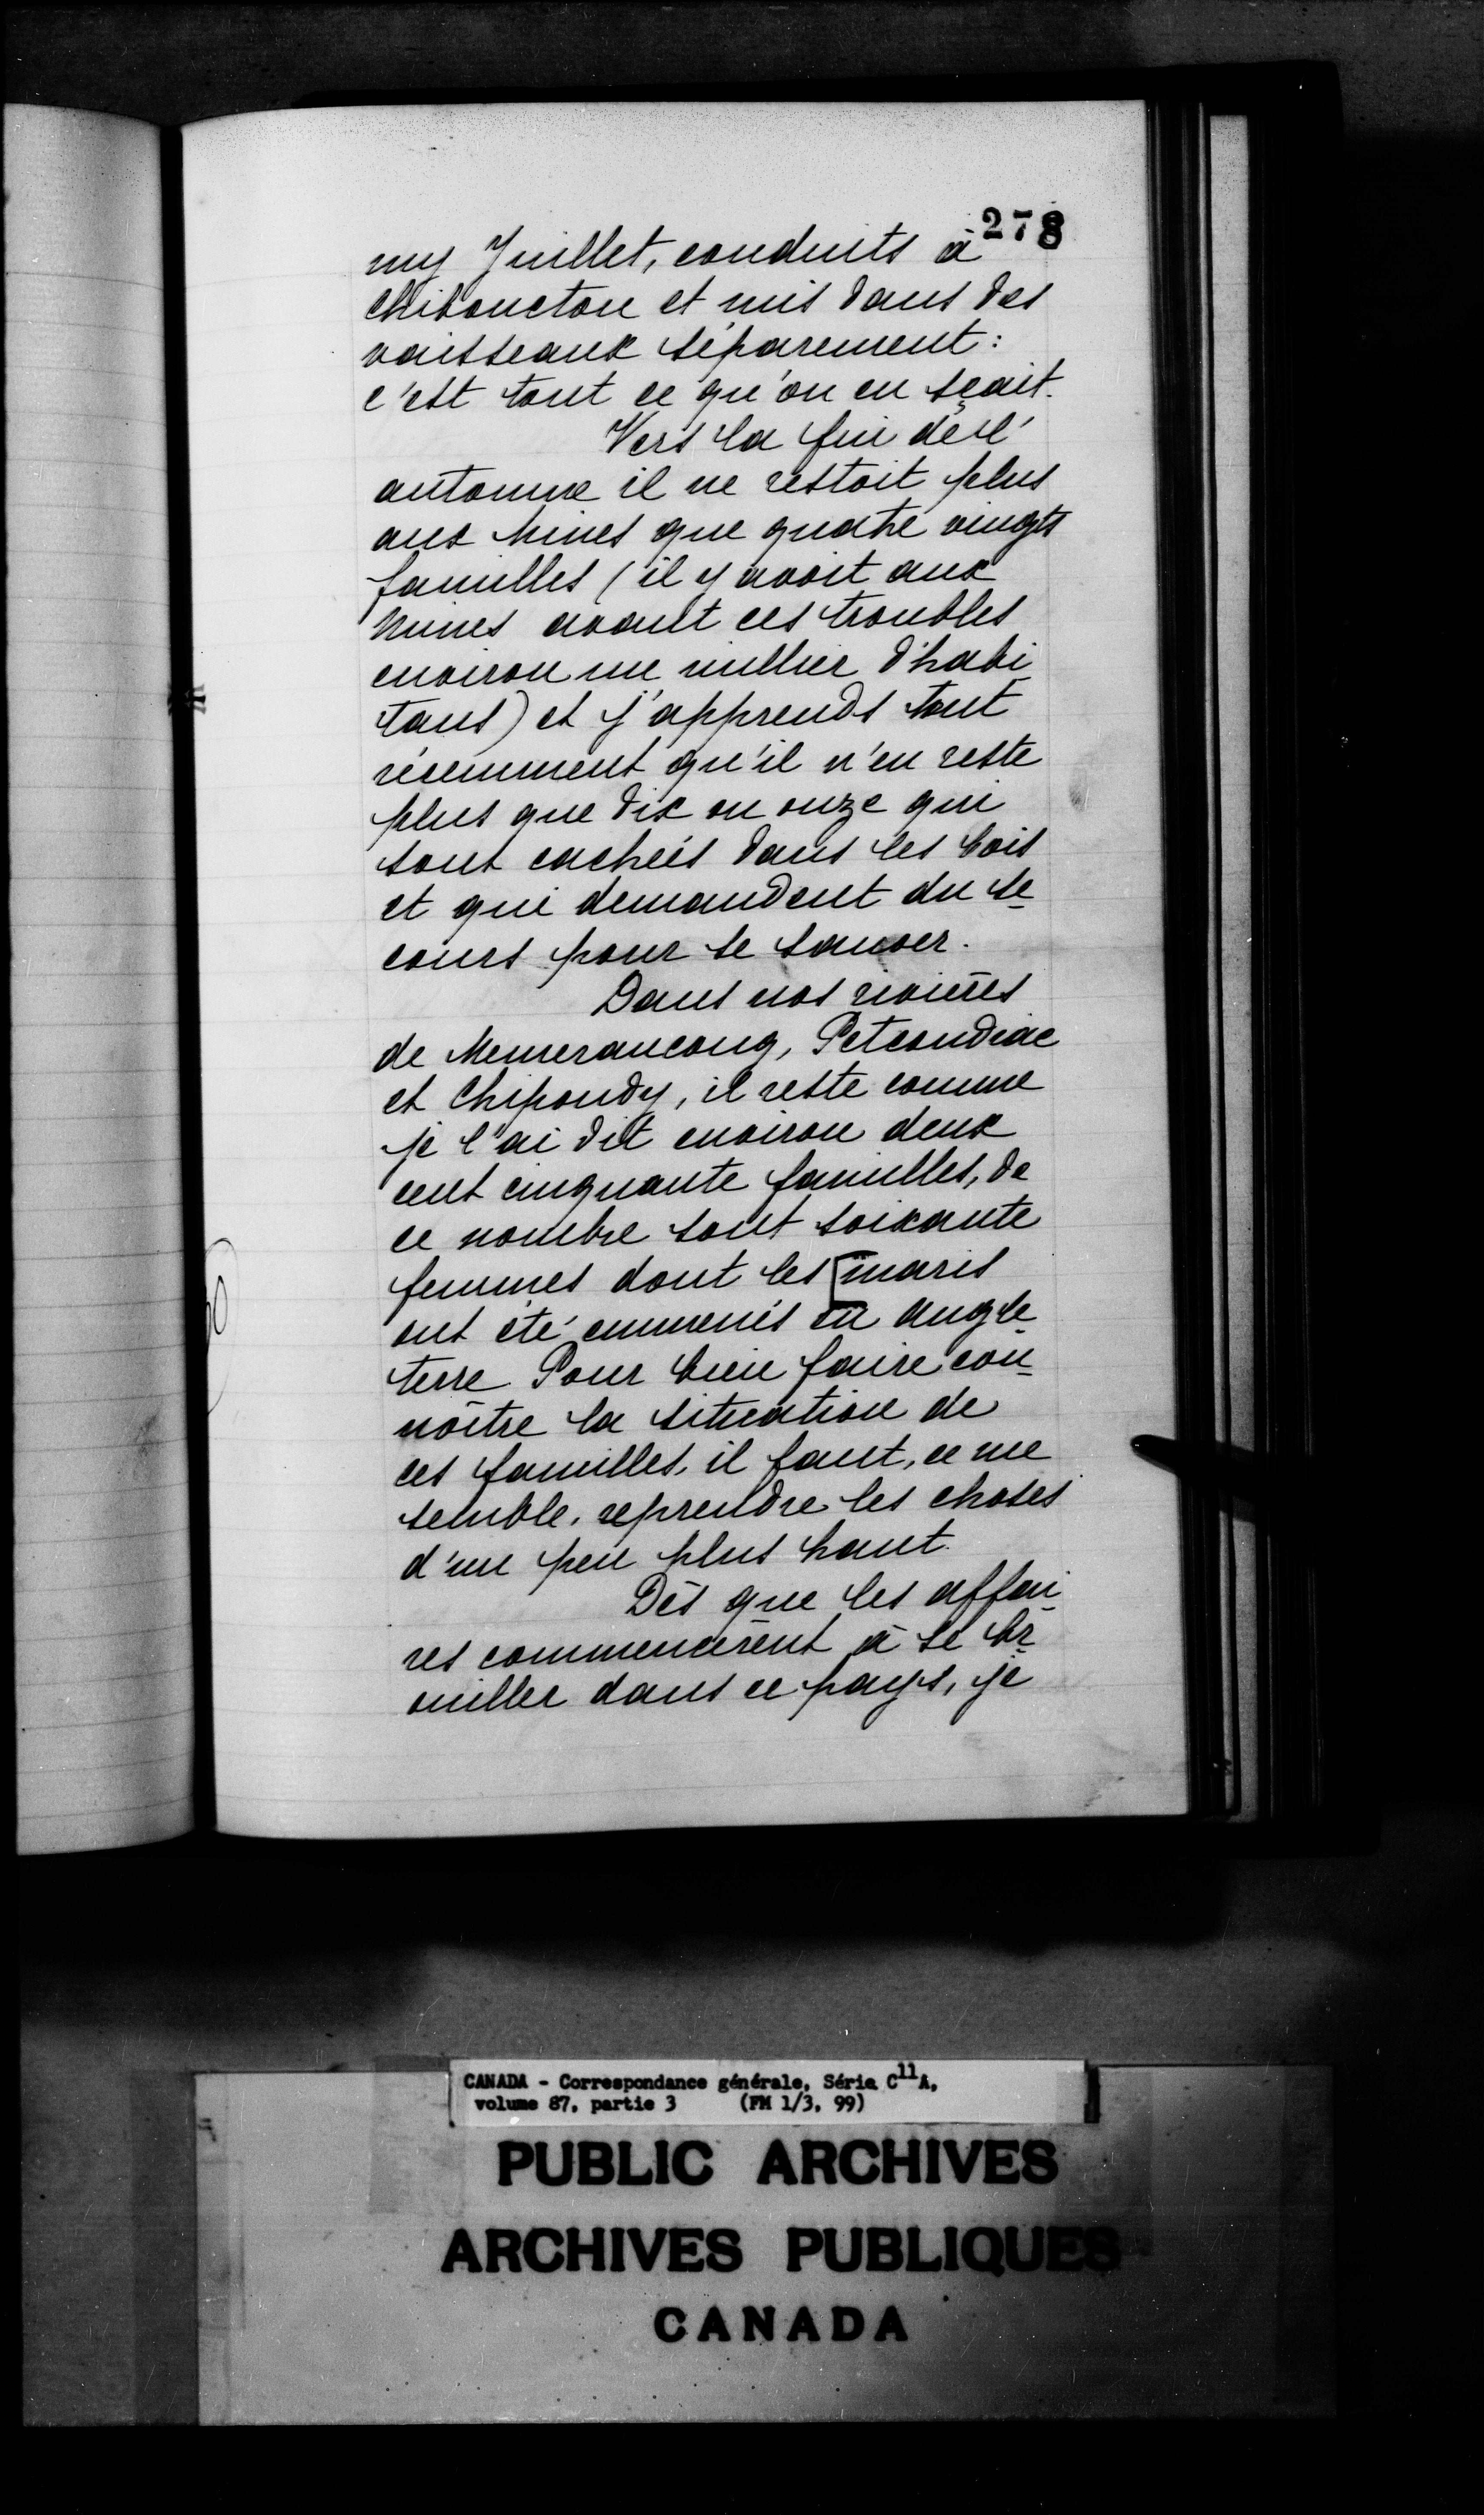 278
my Juillet, conduits à
Chiboucton et mis dans des
vaisseaux séparement :
c'est tout ce qu'on en sçait.
Vers la fin de l'
automne il ne restoit plus
aux Mines que quatre vingts
familles (il y avoit aux
Mines avant ces troubles
environ un millier d'habi
tans) et j'apprends tout
récemment qu'il n'en reste
plus que dix ou onze qui
sont cachéés dans les bois
et qui demandent du se
cours pour se sauver.
Dans nos rivières
de Memerancouq, Petcoudiac
et Chipoudy, il reste comme
je l'ai dit environ deux
cent cinquante familles, de
ce nombre sont soixante
femmes dont les [maris
ont été emmenés en Angle
terre Pour bien faire con
nôitre la situation de
ces familles, il faut, ce me
semble, reprendre les choses
d'un peu plus haut.
Dès que les affai
res commencèrent à se br
ouiller dans ce pays, je
CANADA - Correspondance générale, Série C11A,
volume 87, partie 3 (FM 1/3, 99)
PUBLIC ARCHIVES
ARCHIVES PUBLIQUES
CANADA